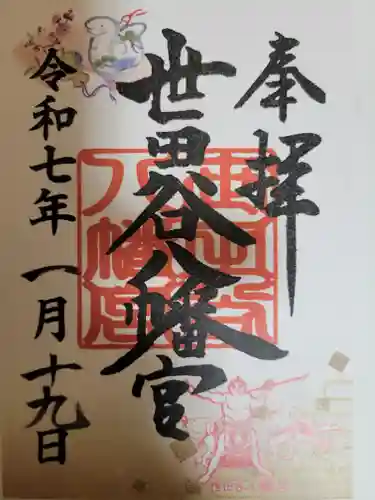 奉拝
世田谷八幡宮
令和七年 一月十九日